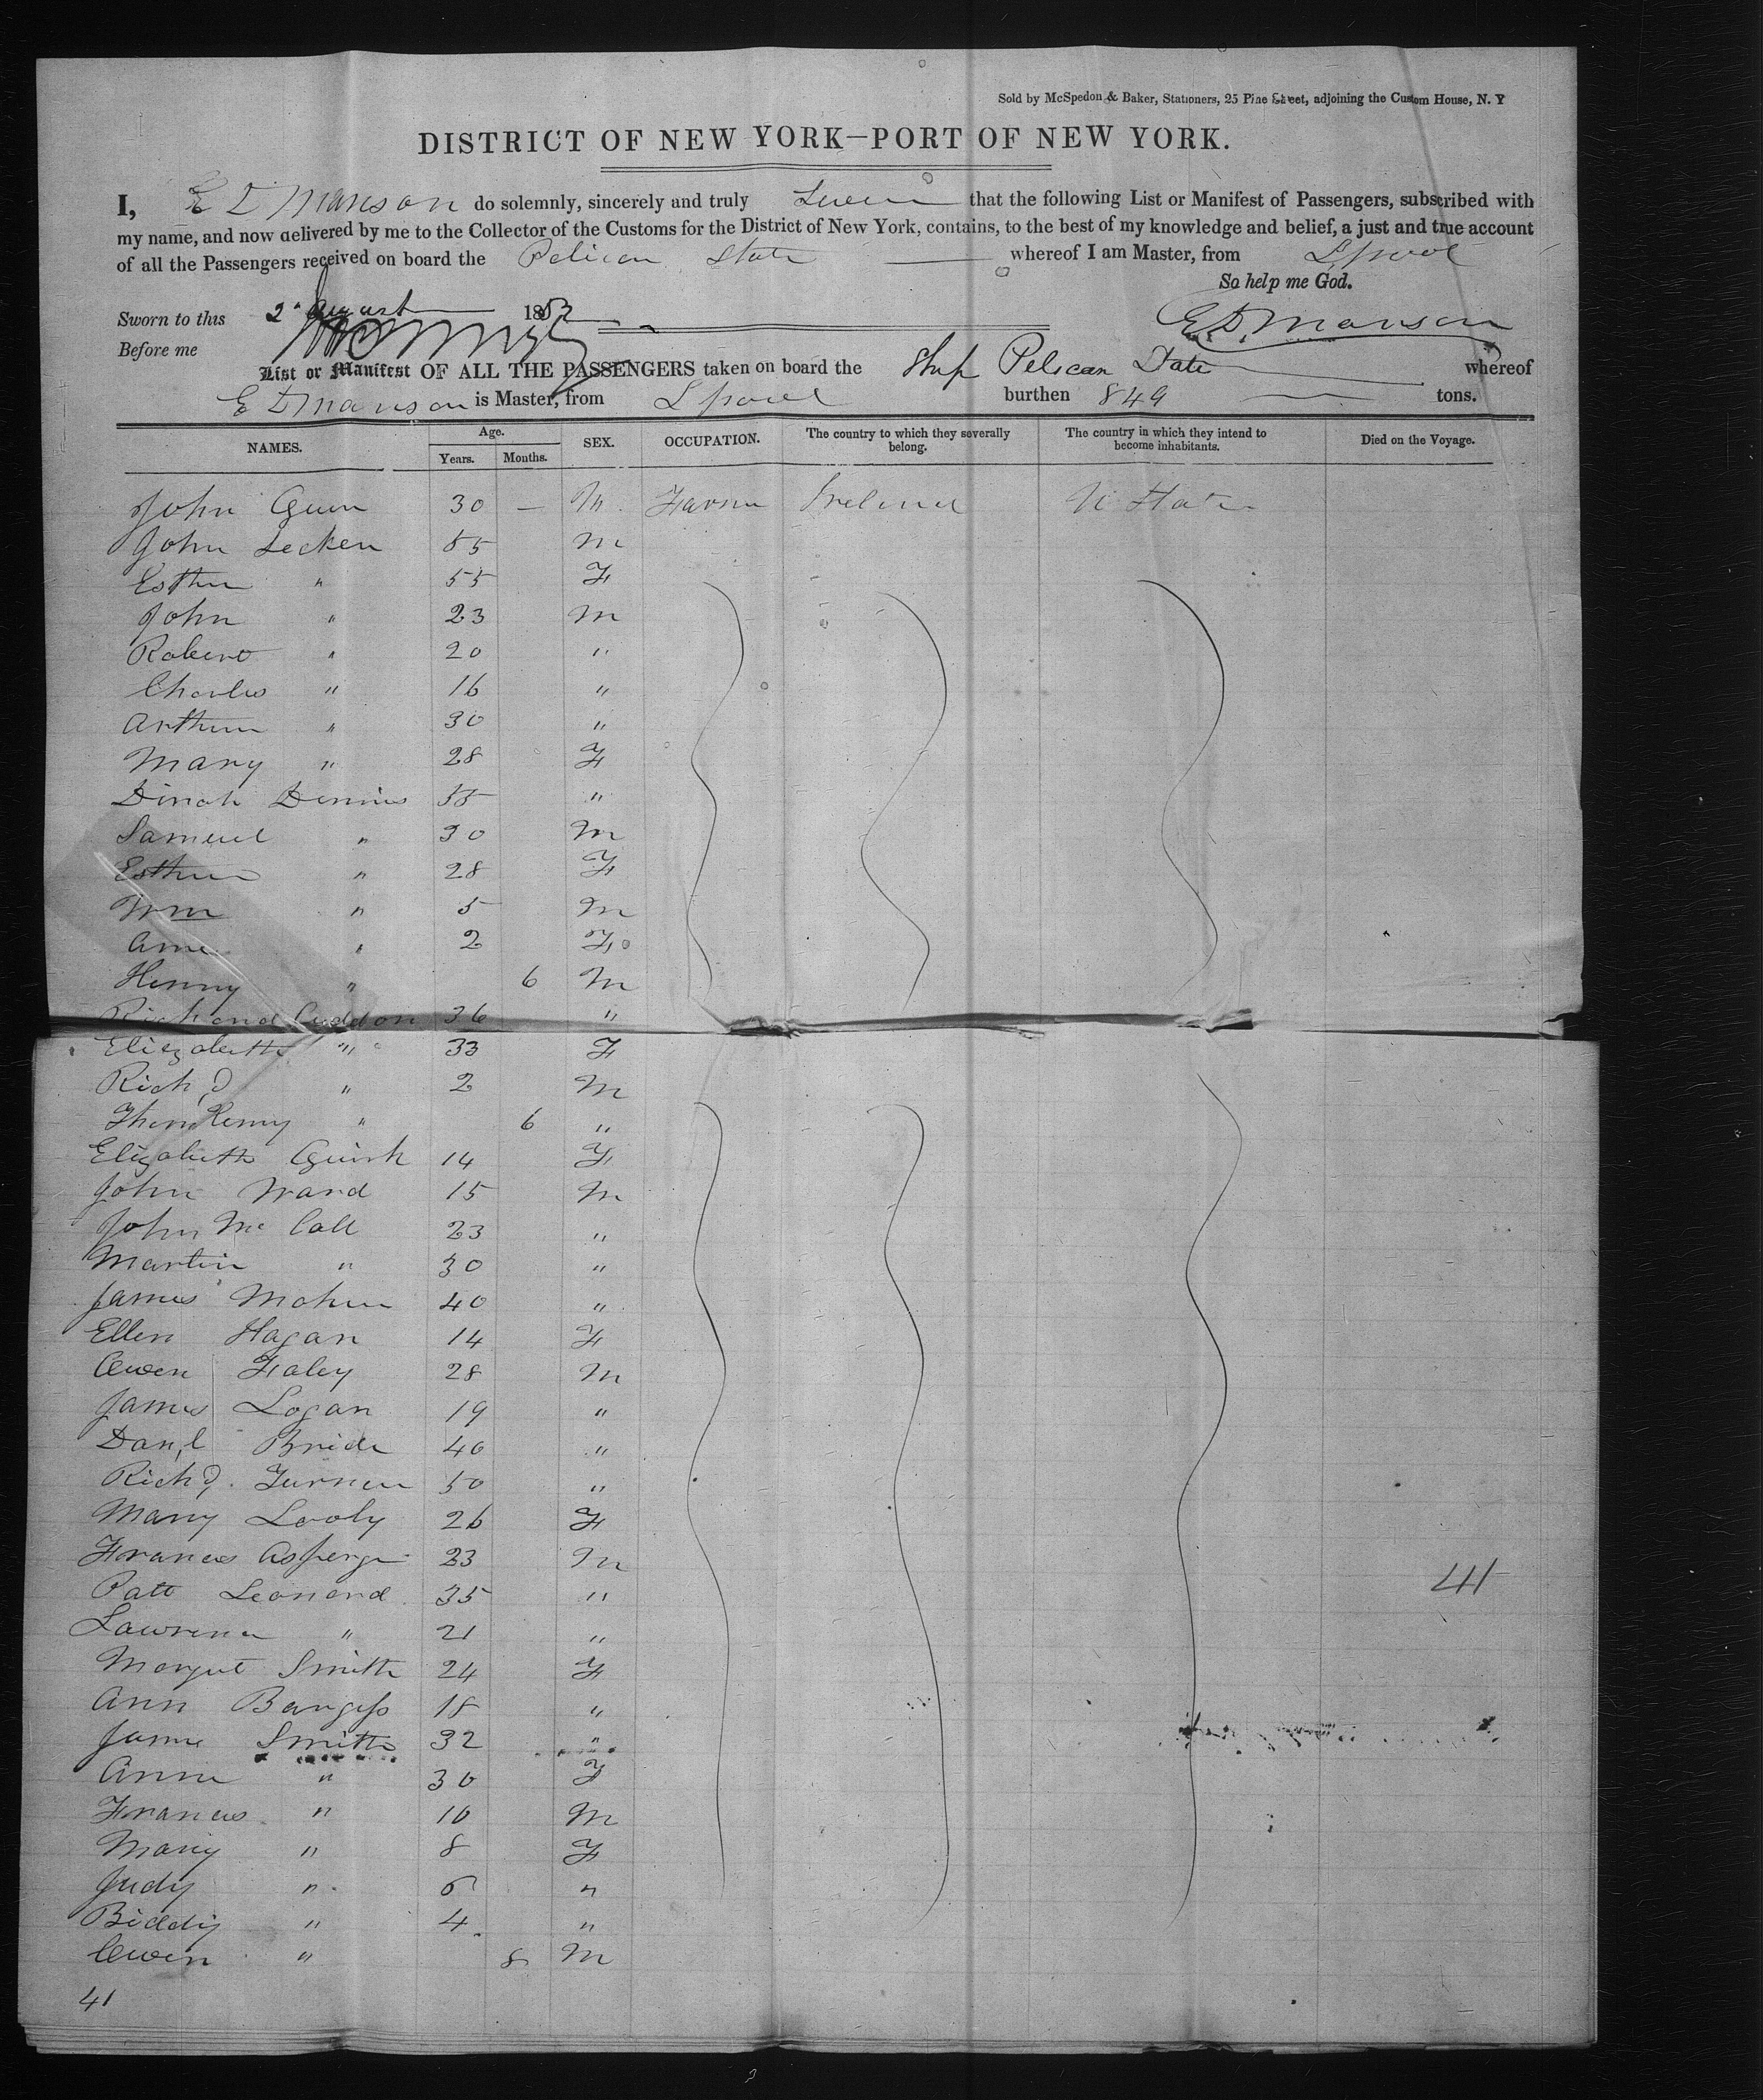 Sold by McSpedon & Baker, Stationers, 25 Pine Street, adjoining the Custom House, N. Y
DISTRICT OF NEW YORK—PORT OF NEW YORK.
I, E D Manson do solemnly, sincerely and truly Swear that the following List or Manifest of Passengers, subscribed with
my name, and now delivered by me to the Collector of the Customs for the District of New York, contains, to the best of my knowledge and belief, a just and true account
of all the Passengers received on board the Pelican State whereof I am Master, from Lpool
So help me God.
Sworn to this 2 August 1853
E D Manson
Before me
List or Manifest OF ALL THE PASSENGERS taken on board the Ship Pelican State whereof
E D Manson is Master, from Lpool burthen 849 tons.
NAMES. Age. Years. Months. SEX. OCCUPATION. The country to which they severally belong. The country in which they intend to become inhabitants. Died on the Voyage.
John 30 — M. Farmer Ireland U States
John Lecken 55 M
Esther " 55 F
John " 23 M
Robert " 20 "
Charles " 16 "
Arthur " 30 "
Mary " 28 F
Dinah Dennis 55 "
Samuel " 30 M
Esther " 28 F
Wm " 5 M
" 2 F
Henry " 6 M
Richard Cuddon 36 "
Eliezabeth " 33 F
Rich,d " 2 M
" 6 "
Elizabeth Quirk 14 F
John Ward 15 M
John Mc Call 23 "
Martin " 30 "
James Mohun 40 "
Ellen Hagan 14 F
Owen Faley 28 M
James Logan 19 "
Dan,l Bride 40 "
Rich,d. Turner 50 "
Mary Looly 26 F
Francis 23 M
Patt Leonard 35 "
Lawrence " 21 "
Margret Smith 24 F
Ann Bargess 18 "
Smith 32 "
Anne " 30 F
Francis " 10 M
Mary " 8 F
Judy " 6 "
Biddy " 4 "
Owen " 8 M
41
41